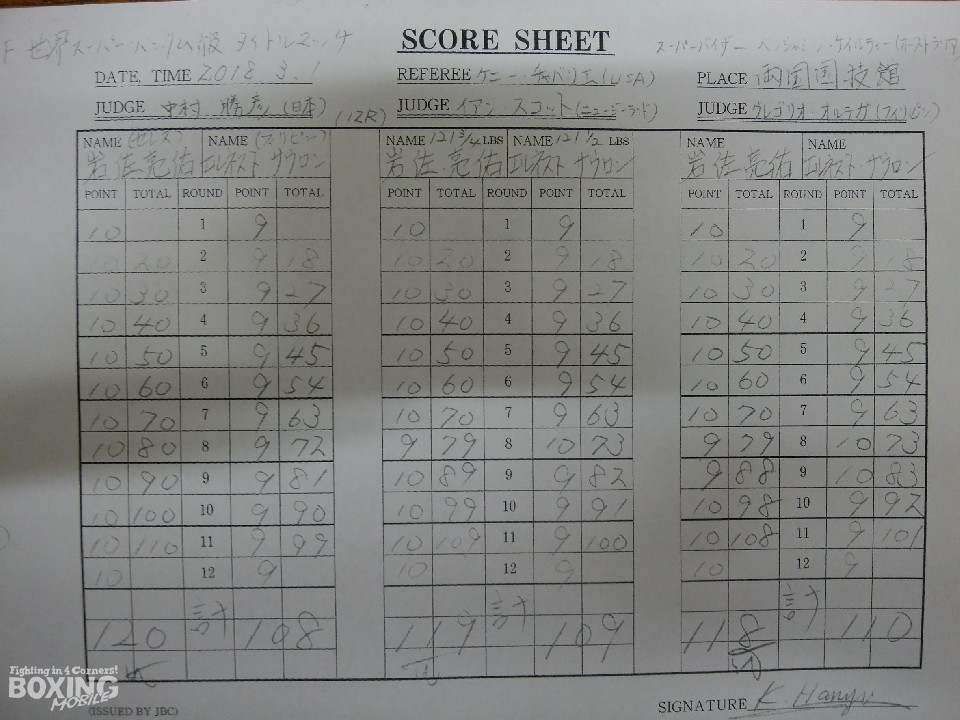 F 世界スーパーバンタム級 タイトルマッチ
SCORE SHEET
スーパーバイザー ベンジャミン・ケイルティー(オーストラリア)
DATE, TIME 2018 3.1
REFEREE ケニー・チャバリエ(USA)
PLACE 両国国技館
JUDGE 中村 勝彦(日本)
(12R)
JUDGE イアン・スコット(ニュージーランド)
JUDGE グレゴリオ オルテガ(フィリピン)
NAME (セレス) NAME (フィリピン)
NAME 121 3/4 LBS NAME 121 1/2 LBS
NAME NAME
岩佐亮佑 エルネスト サウロン
岩佐亮佑 エルネスト サウロン
岩佐亮佑 エルネスト・サウロン
POINT TOTAL ROUND POINT TOTAL POINT TOTAL ROUND POINT TOTAL POINT TOTAL ROUND POINT TOTAL
10 1 9 10 1 9 10 1 9
10 20 2 9 18 10 20 2 9 18 10 20 2 9 18
10 30 3 9 27 10 30 3 9 27 10 30 3 9 27
10 40 4 9 36 10 40 4 9 36 10 40 4 9 36
10 50 5 9 45 10 50 5 9 45 10 50 5 9 45
10 60 6 9 54 10 60 6 9 54 10 60 6 9 54
10 70 7 9 63 10 70 7 9 63 10 70 7 9 63
10 80 8 9 72 9 79 8 10 73 9 79 8 10 73
10 90 9 9 81 10 89 9 9 82 9 88 9 10 83
10 100 10 9 90 10 99 10 9 91 10 98 10 9 92
10 110 11 9 99 10 109 11 9 100 10 108 11 9 101
10 12 9 10 12 9 10 12 9
120 計 108 119 計 109 118 計 110
Fighting in 4 Corners!
BOXING
MOBILE
(ISSUED BY JBC)
SIGNATURE K. Hanyu